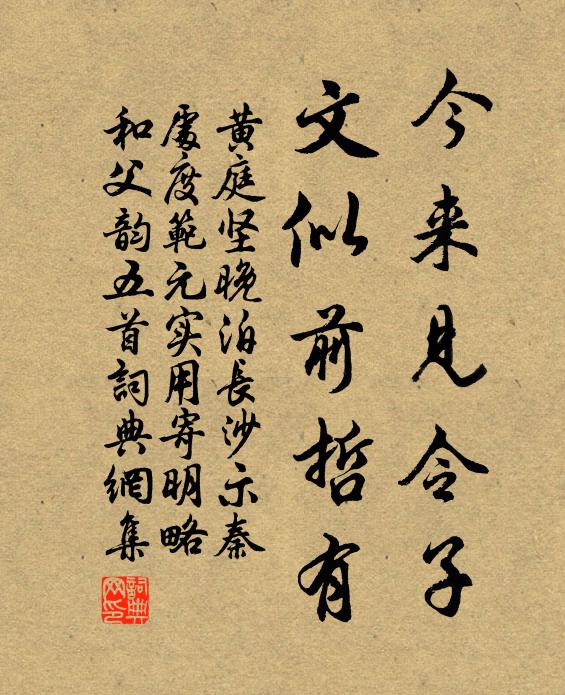 今来見令子
文似前哲有
黄庭坚晚泊長沙示秦
處度範元实用寄明略
和父韵五首詞典網集
詞典网印